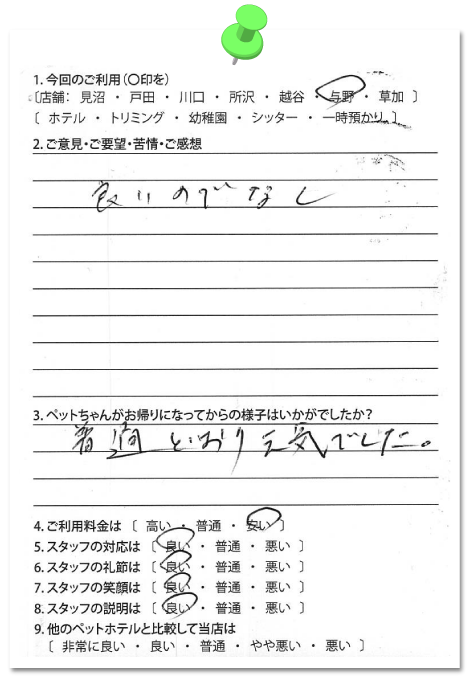 1. 今回のご利用(〇印を)
〔店舗: 見沼 ・ 戸田 ・ 川口 ・ 所沢 ・ 越谷 ・ 与野 ・ 草加 〕
〔 ホテル ・ トリミング ・ 幼稚園 ・ シッター ・ 一時預かり 〕
2. ご意見・ご要望・苦情・ご感想
良いのでなし
3. ペットちゃんがお帰りになってからの様子はいかがでしたか?
普通どおり元気でした。
4. ご利用料金は 〔 高い ・ 普通 ・ 安い 〕
5. スタッフの対応は 〔 良い ・ 普通 ・ 悪い 〕
6. スタッフの礼節は 〔 良い ・ 普通 ・ 悪い 〕
7. スタッフの笑顔は 〔 良い ・ 普通 ・ 悪い 〕
8. スタッフの説明は 〔 良い ・ 普通 ・ 悪い 〕
9. 他のペットホテルと比較して当店は
〔 非常に良い ・ 良い ・ 普通 ・ やや悪い ・ 悪い 〕